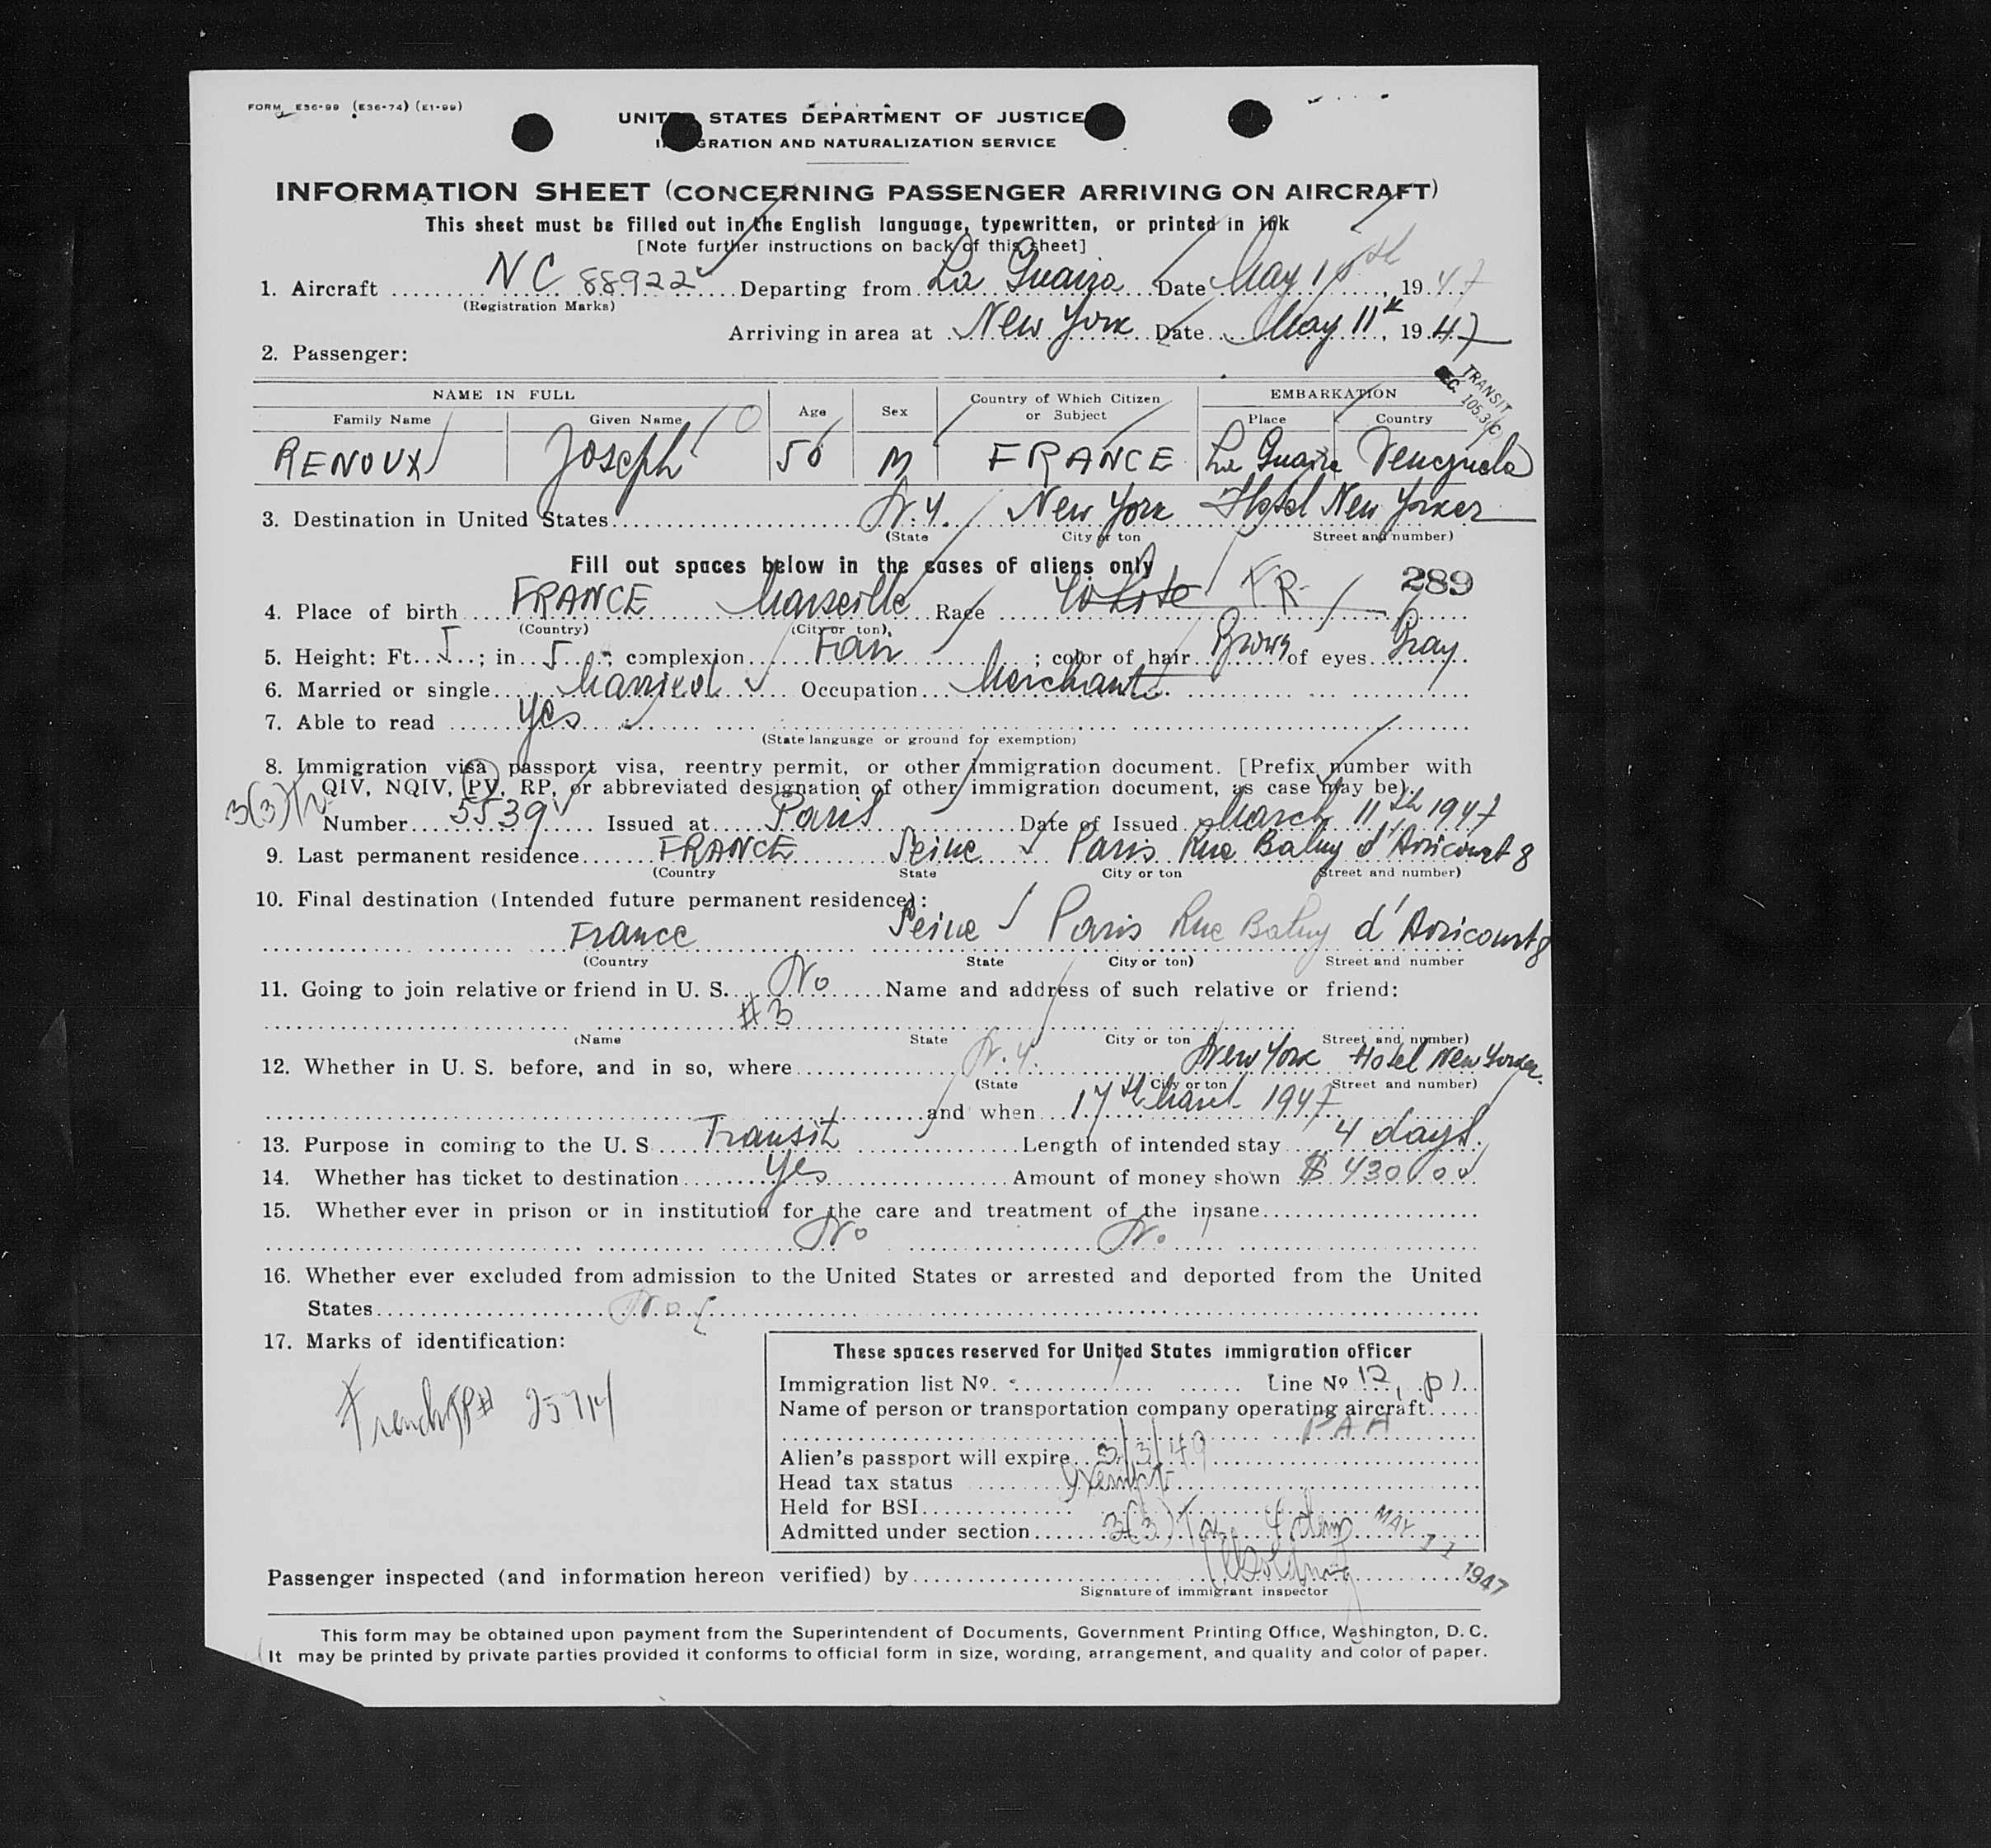 FORM E36-99 (E36-74) (E1-99)
UNITED STATES DEPARTMENT OF JUSTICE
IMMIGRATION AND NATURALIZATION SERVICE
INFORMATION SHEET (CONCERNING PASSENGER ARRIVING ON AIRCRAFT)
This sheet must be filled out in the English language, typewritten, or printed in ink
[Note further instructions on back of this sheet]
1. Aircraft NC 88922 Departing from La Guaira Date May 1 th, 1947
(Registration Marks)
Arriving in area at New York Date May 11th, 1947
2. Passenger:
TRANSIT
SEC. 105.3(c)
NAME IN FULL Age Sex Country of Which Citizen or Subject EMBARKATION
Family Name Given Name Place Country
RENOUX Joseph 50 M FRANCE La Guaira Venezuela
3. Destination in United States N.Y. New York Hotel New Yorker
(State City or ton Street and number)
Fill out spaces below in the cases of aliens only
289
4. Place of birth FRANCE Marseille Race White FR-
(Country) (City or ton),
5. Height: Ft. 5; in. 5; complexion Fair; color of hair Brown of eyes Gray
6. Married or single Married Occupation Merchant
7. Able to read yes
(State language or ground for exemption)
8. Immigration visa, passport visa, reentry permit, or other immigration document. [Prefix number with
QIV, NQIV, PV, RP, or abbreviated designation of other immigration document, as case may be).
3(3)
Number 5539 Issued at Paris Date of Issued March 11th 1947
9. Last permanent residence FRANCE Seine Paris Rue Balny d'Avricourt 8
(Country State City or ton Street and number)
10. Final destination (Intended future permanent residence):
France Seine Paris Rue Balny d'Avricourt 8
(Country State City or ton) Street and number
11. Going to join relative or friend in U. S. No Name and address of such relative or friend:
#3
(Name State City or ton Street and number)
12. Whether in U. S. before, and in so, where N.Y. New York Hotel New Yorker
(State City or ton Street and number)
and when 17th March 1947
13. Purpose in coming to the U. S Transit Length of intended stay 4 days.
14. Whether has ticket to destination yes Amount of money shown $ 430 00
15. Whether ever in prison or in institution for the care and treatment of the insane
No No
16. Whether ever excluded from admission to the United States or arrested and deported from the United
States No
17. Marks of identification:
French PP# 25714
These spaces reserved for United States immigration officer
Immigration list No. Line No 12,
Name of person or transportation company operating aircraft
PAA
Alien's passport will expire 3/3/49
Head tax status Exempt
Held for BSI
Admitted under section 3(3)
MAY 11 1947
Passenger inspected (and information hereon verified) by
Signature of immigrant inspector
This form may be obtained upon payment from the Superintendent of Documents, Government Printing Office, Washington, D. C.
It may be printed by private parties provided it conforms to official form in size, wording, arrangement, and quality and color of paper.